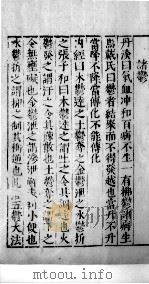 諸鬱
丹溪曰氣血冲和百病不生一有拂鬱諸病生
焉戴氏曰鬱者結聚而不得發越也當升不升
當降不降當傳化不能傳化
內經曰木鬱達之 鬱奪之金鬱泄之水鬱折
之張子和曰木鬱達之謂吐之令其條達也火
鬱發之謂汗之令其疎散也土鬱奪之謂下之
令無壅礙也金鬱泄之謂滲泄解表利小便也
水鬱折之謂抑之制其衝逆也此五鬱大法